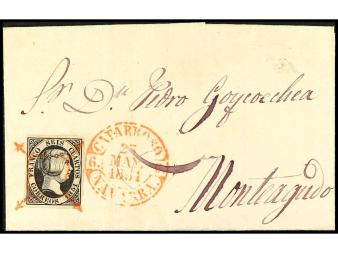 Sr. Dn. Pedro Goycoechea
Monteagudo
FRANCO SEIS CUARTOS
CORREOS 1851
CAPARROSO
6.
MAY
1851
NAVARRA